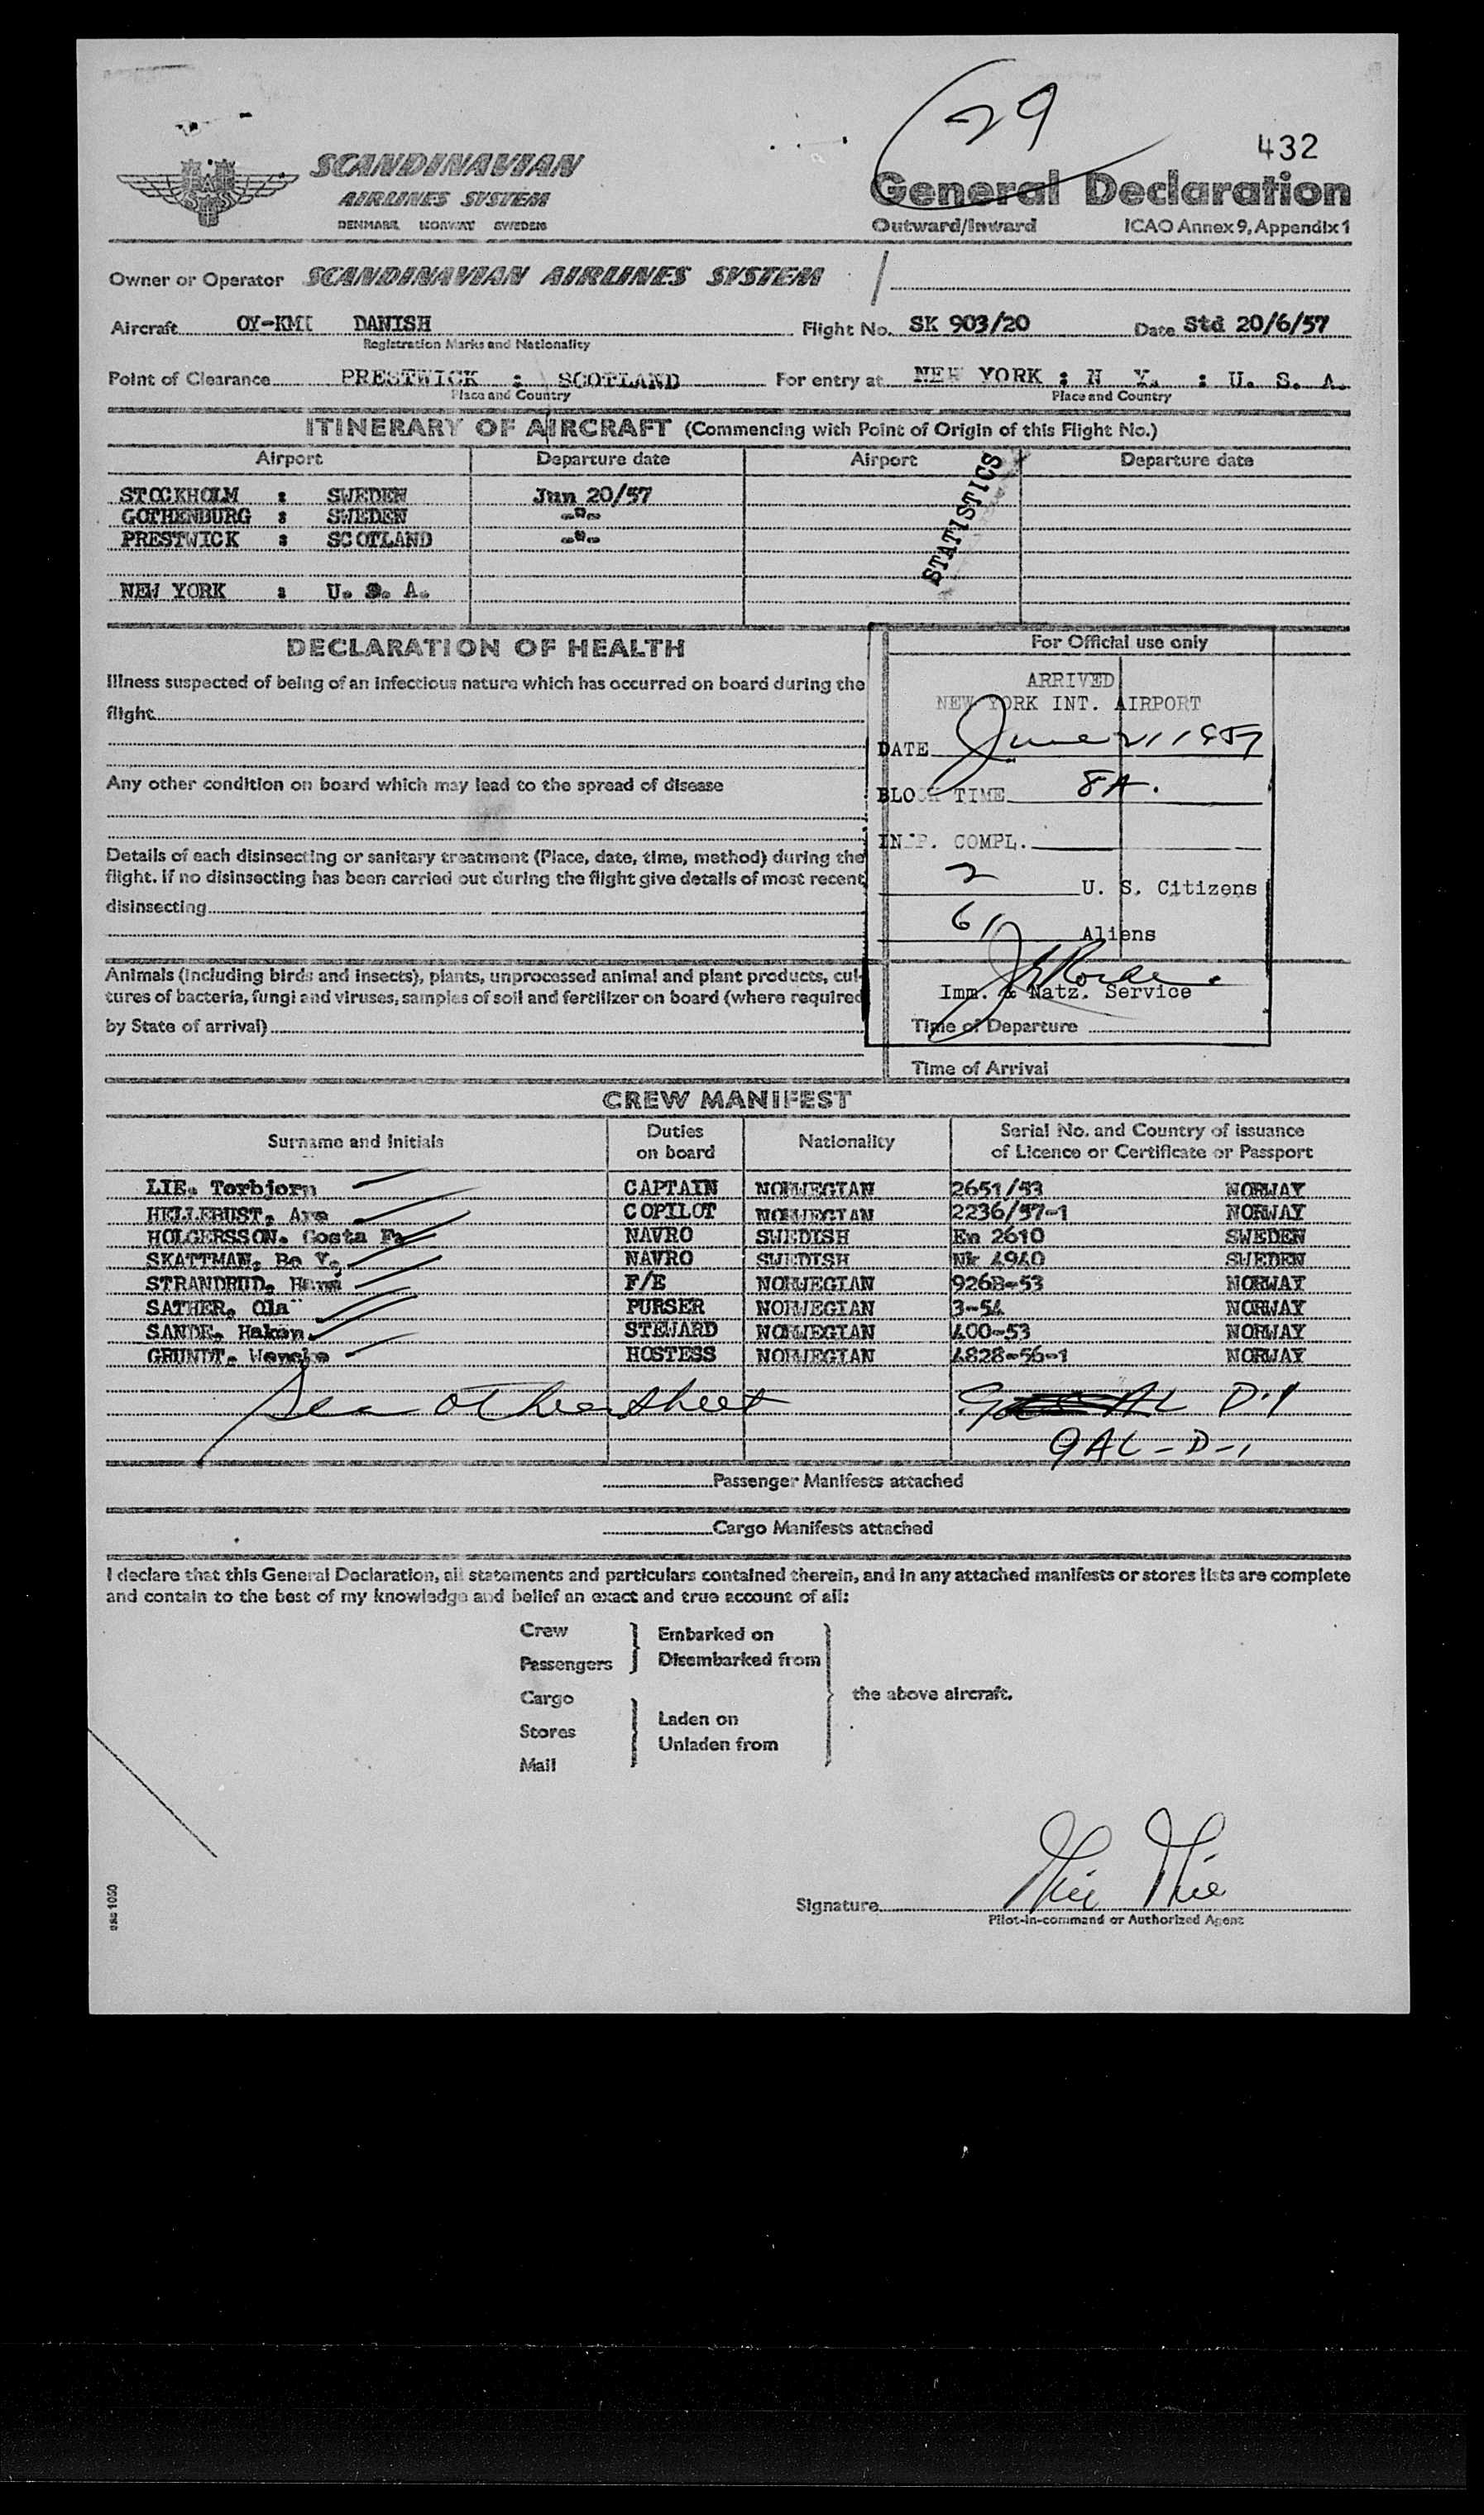 29
432
SCANDINAVIAN
AIRLINES SYSTEM
DENMARK NORWAY SWEDEN
General Declaration
Outward/Inward ICAO Annex 9, Appendix 1
Owner or Operator SCANDINAVIAN AIRLINES SYSTEM
Aircraft OY-KMI DANISH Flight No. SK 903/20 Date Std 20/6/57
Registration Marks and Nationality
Point of Clearance PRESTWICK : SCOTLAND For entry at NEW YORK : N Y. : U. S. A.
Place and Country Place and Country
ITINERARY OF AIRCRAFT (Commencing with Point of Origin of this Flight No.)
Airport Departure date Airport Departure date
STOCKHOLM : SWEDEN Jun 20/57
GOTHENBURG : SWEDEN -"-
PRESTWICK : SCOTLAND -"-
NEW YORK : U. S. A.
STATISTICS
DECLARATION OF HEALTH
Illness suspected of being of an infectious nature which has occurred on board during the
flight
Any other condition on board which may lead to the spread of disease
Details of each disinsecting or sanitary treatment (Place, date, time, method) during the
flight. If no disinsecting has been carried out during the flight give details of most recent
disinsecting
Animals (including birds and insects), plants, unprocessed animal and plant products, cul-
tures of bacteria, fungi and viruses, samples of soil and fertilizer on board (where required
by State of arrival)
For Official use only
ARRIVED
NEW YORK INT. AIRPORT
DATE June 21 1957
BLOCK TIME 8A.
INSP. COMPL.
2 U. S. Citizens
61 Aliens
Imm. & Natz. Service
Time of Departure
Time of Arrival
CREW MANIFEST
Surname and Initials Duties on board Nationality Serial No. and Country of issuance of Licence or Certificate or Passport
LIE. Torbjorn CAPTAIN NORWEGIAN 2651/53 NORWAY
HELLEBUST, Are COPILOT NORWEGIAN 2236/57-1 NORWAY
HOLGERSSON. Gosta NAVRO SWEDISH En 2610 SWEDEN
SKATTMAN, Bo Y. NAVRO SWEDISH Nk 4940 SWEDEN
STRANDRUD, F/E NORWEGIAN 926B-53 NORWAY
SATHER, Ola PURSER NORWEGIAN 3-54 NORWAY
SANDE, Hakon STEWARD NORWEGIAN 400-53 NORWAY
GRUNDT. Wenche HOSTESS NORWEGIAN 4828-56-1 NORWAY
See other sheet AL D-1
9AL-D-1
Passenger Manifests attached
Cargo Manifests attached
I declare that this General Declaration, all statements and particulars contained therein, and in any attached manifests or stores lists are complete
and contain to the best of my knowledge and belief an exact and true account of all:
Crew
Passengers
Embarked on
Disembarked from
Cargo
Stores
Mail
Laden on
Unladen from
the above aircraft.
Signature
Pilot-in-command or Authorized Agent
sas 1050